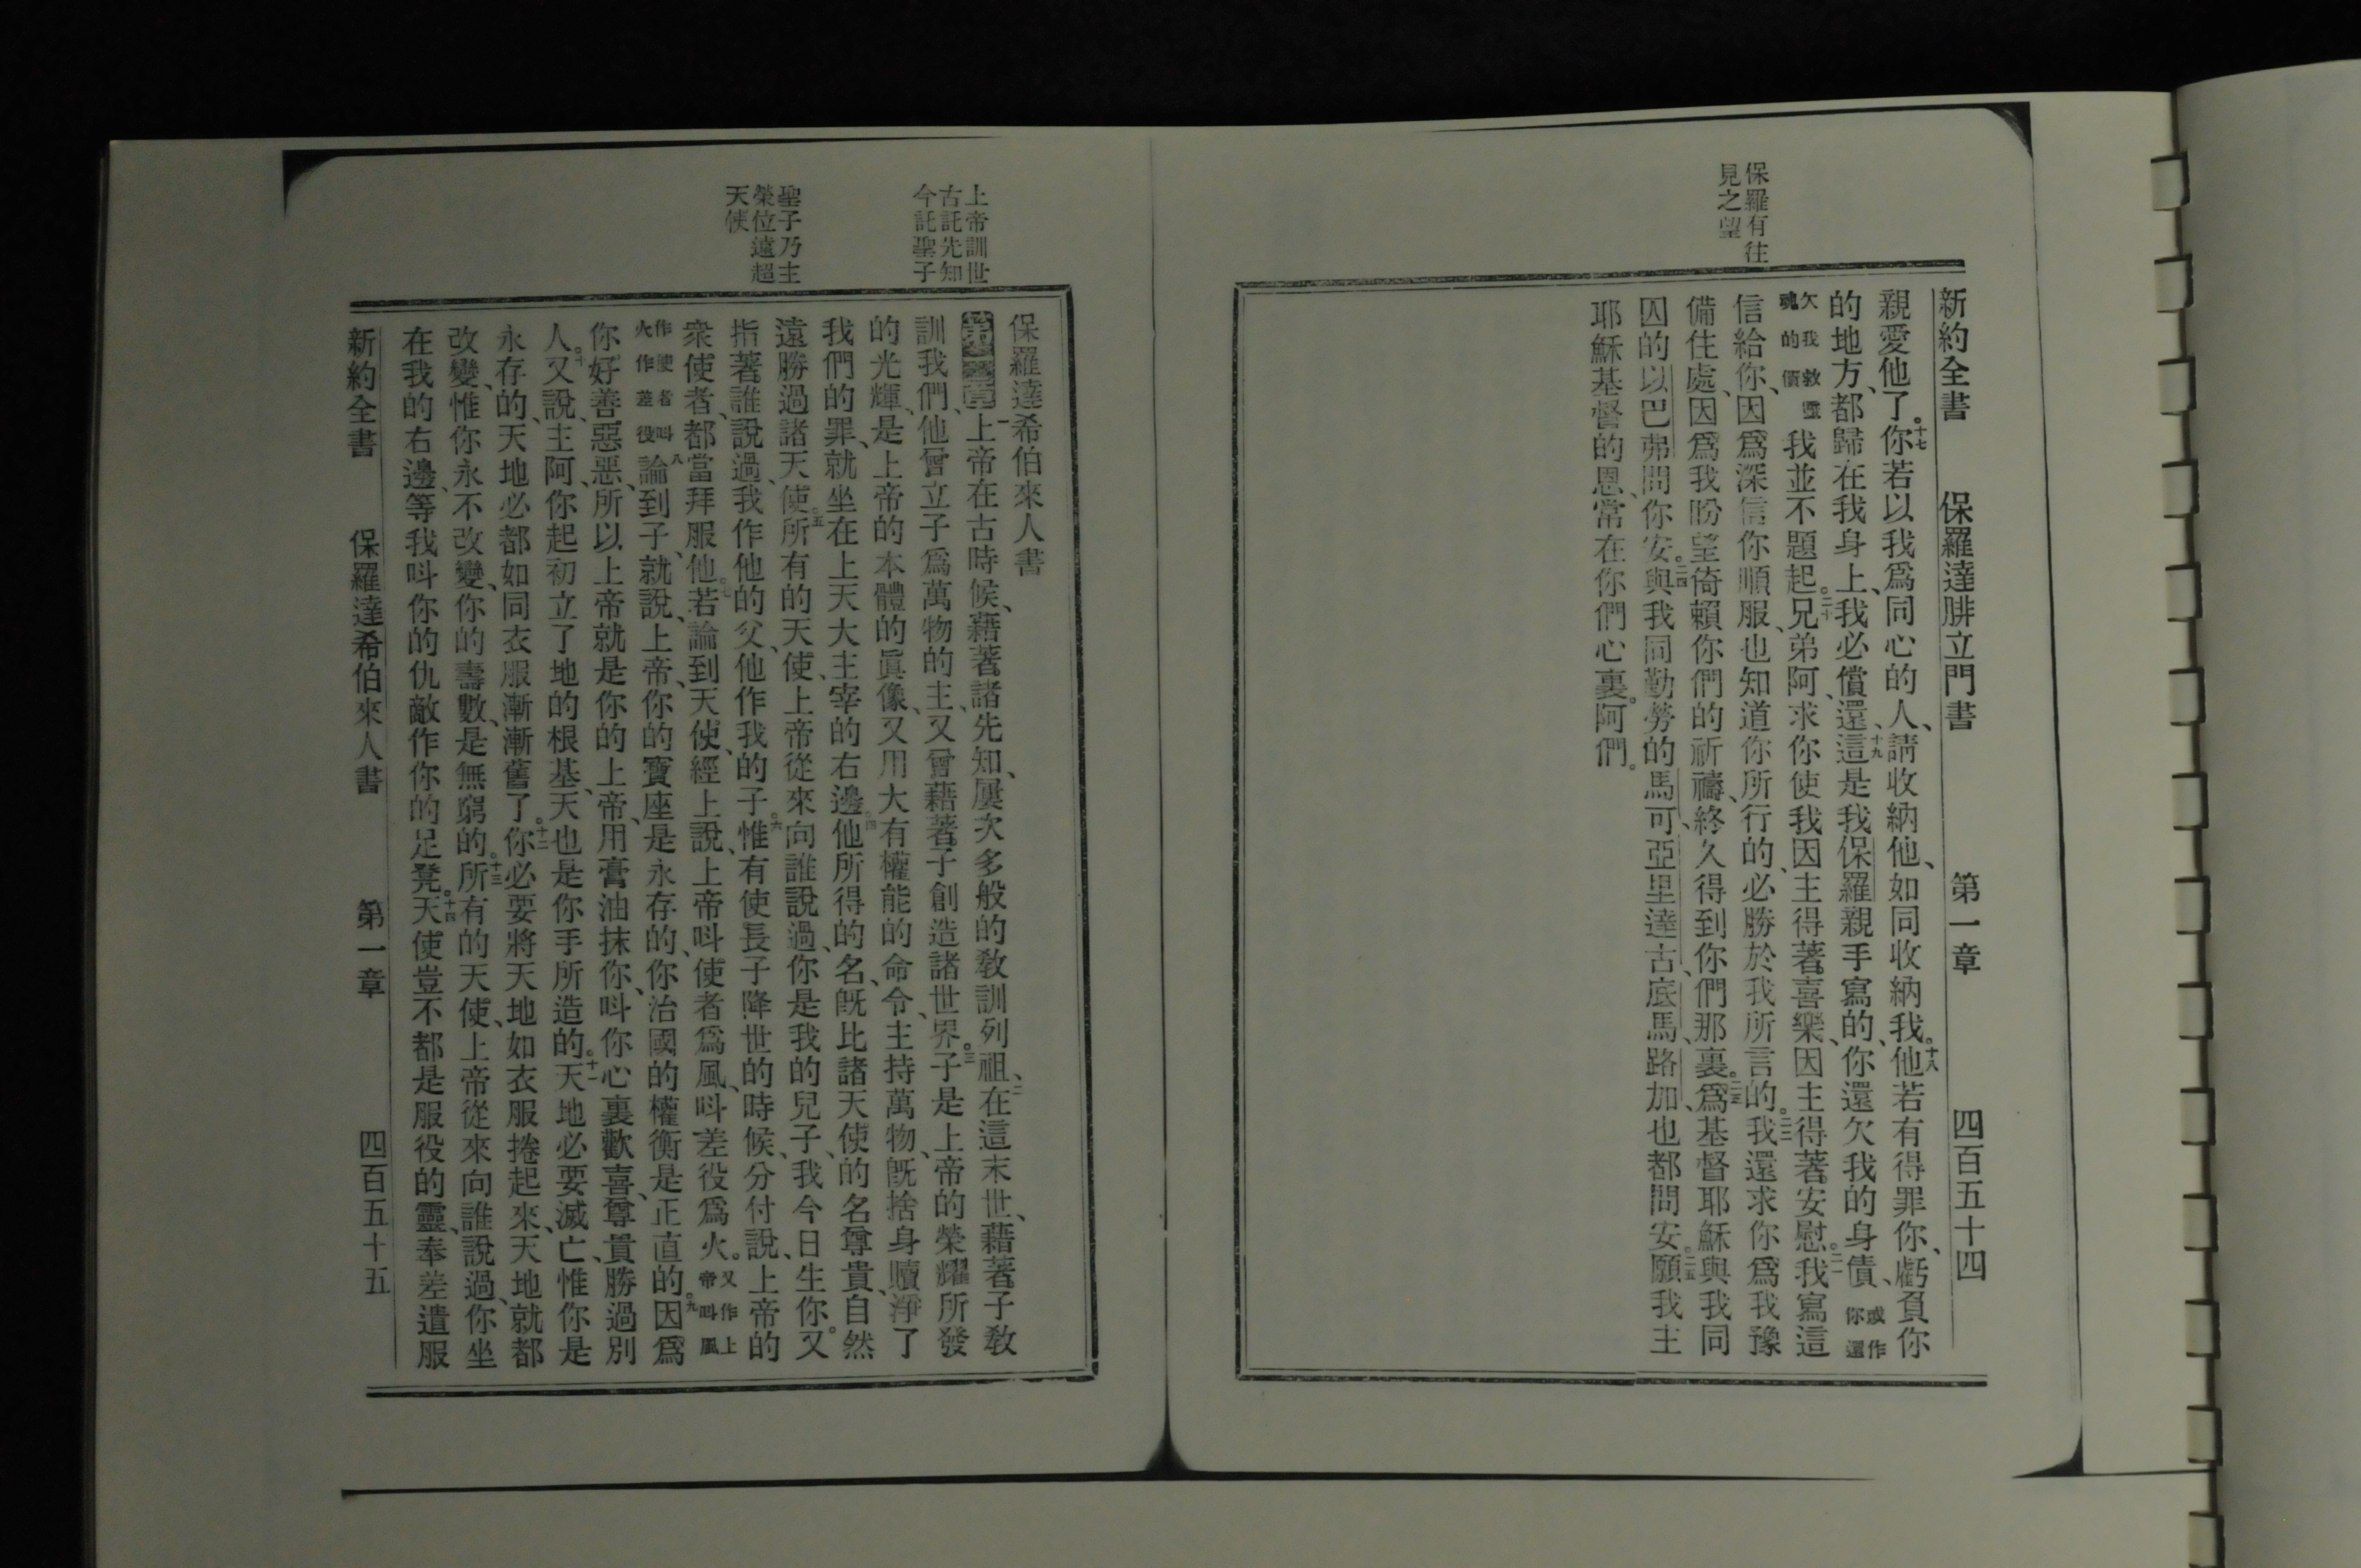 保羅有往
見之望
新約全書　保羅達腓立門書　第一章　四百五十四
親愛他了。十七你若以我爲同心的人、請收納他、如同收納我。十八他若有得罪你、虧負你
的地方、都歸在我身上、我必償還、十九這是我保羅親手寫的、你還欠我的身債、或作你還
欠我救靈魂的價我並不題起。二十兄弟阿、求你使我因主得著喜樂、因主得著安慰。二一我寫這
信給你、因爲深信你順服、也知道你所行的、必勝於我所言的。二二我還求你爲我豫
備住處、因爲我盼望倚賴你們的祈禱、終久得到你們那裏。二三爲基督耶穌與我同
囚的以巴弗問你安。二四與我同勤勞的馬可、亞里達古、底馬、路加、也都問安。二五願我主
耶穌基督的恩、常在你們心裏。阿們。
上帝訓世
古託先知
今託聖子
聖子乃主
榮位遠超
天使
保羅達希伯來人書
第一章一上帝在古時候、藉著諸先知、屢次多般的敎訓列祖、二在這末世、藉著子敎
訓我們、他曾立子爲萬物的主、又曾藉著子創造諸世界。三子是上帝的榮耀所發
的光輝、是上帝的本體的眞像、又用大有權能的命令、主持萬物、旣捨身贖淨了
我們的罪、就坐在上天大主宰的右邊。四他所得的名、旣比諸天使的名尊貴、自然
遠勝過諸天使。五所有的天使、上帝從來向誰說過、你是我的兒子、我今日生你。又
指著誰說過、我作他的父、他作我的子。六惟有使長子降世的時候、分付說、上帝的
衆使者、都當拜服他。七若論到天使、經上說、上帝呌使者爲風、呌差役爲火。又作上帝呌風
作使者呌火作差役八論到子、就說、上帝、你的寶座是永存的、你治國的權衡是正直的。九因爲
你好善惡惡、所以上帝就是你的上帝、用膏油抹你、呌你心裏歡喜、尊貴勝過別
人。十又說、主阿、你起初立了地的根基、天也是你手所造的。十一天地必要滅亡、惟你是
永存的、天地必都如同衣服漸漸舊了。十二你必要將天地如衣服捲起來、天地就都
改變、惟你永不改變、你的壽數、是無窮的。十三所有的天使、上帝從來向誰說過、你坐
在我的右邊、等我呌你的仇敵作你的足凳。十四天使豈不都是服役的靈、奉差遣服
新約全書　保羅達希伯來人書　第一章　四百五十五